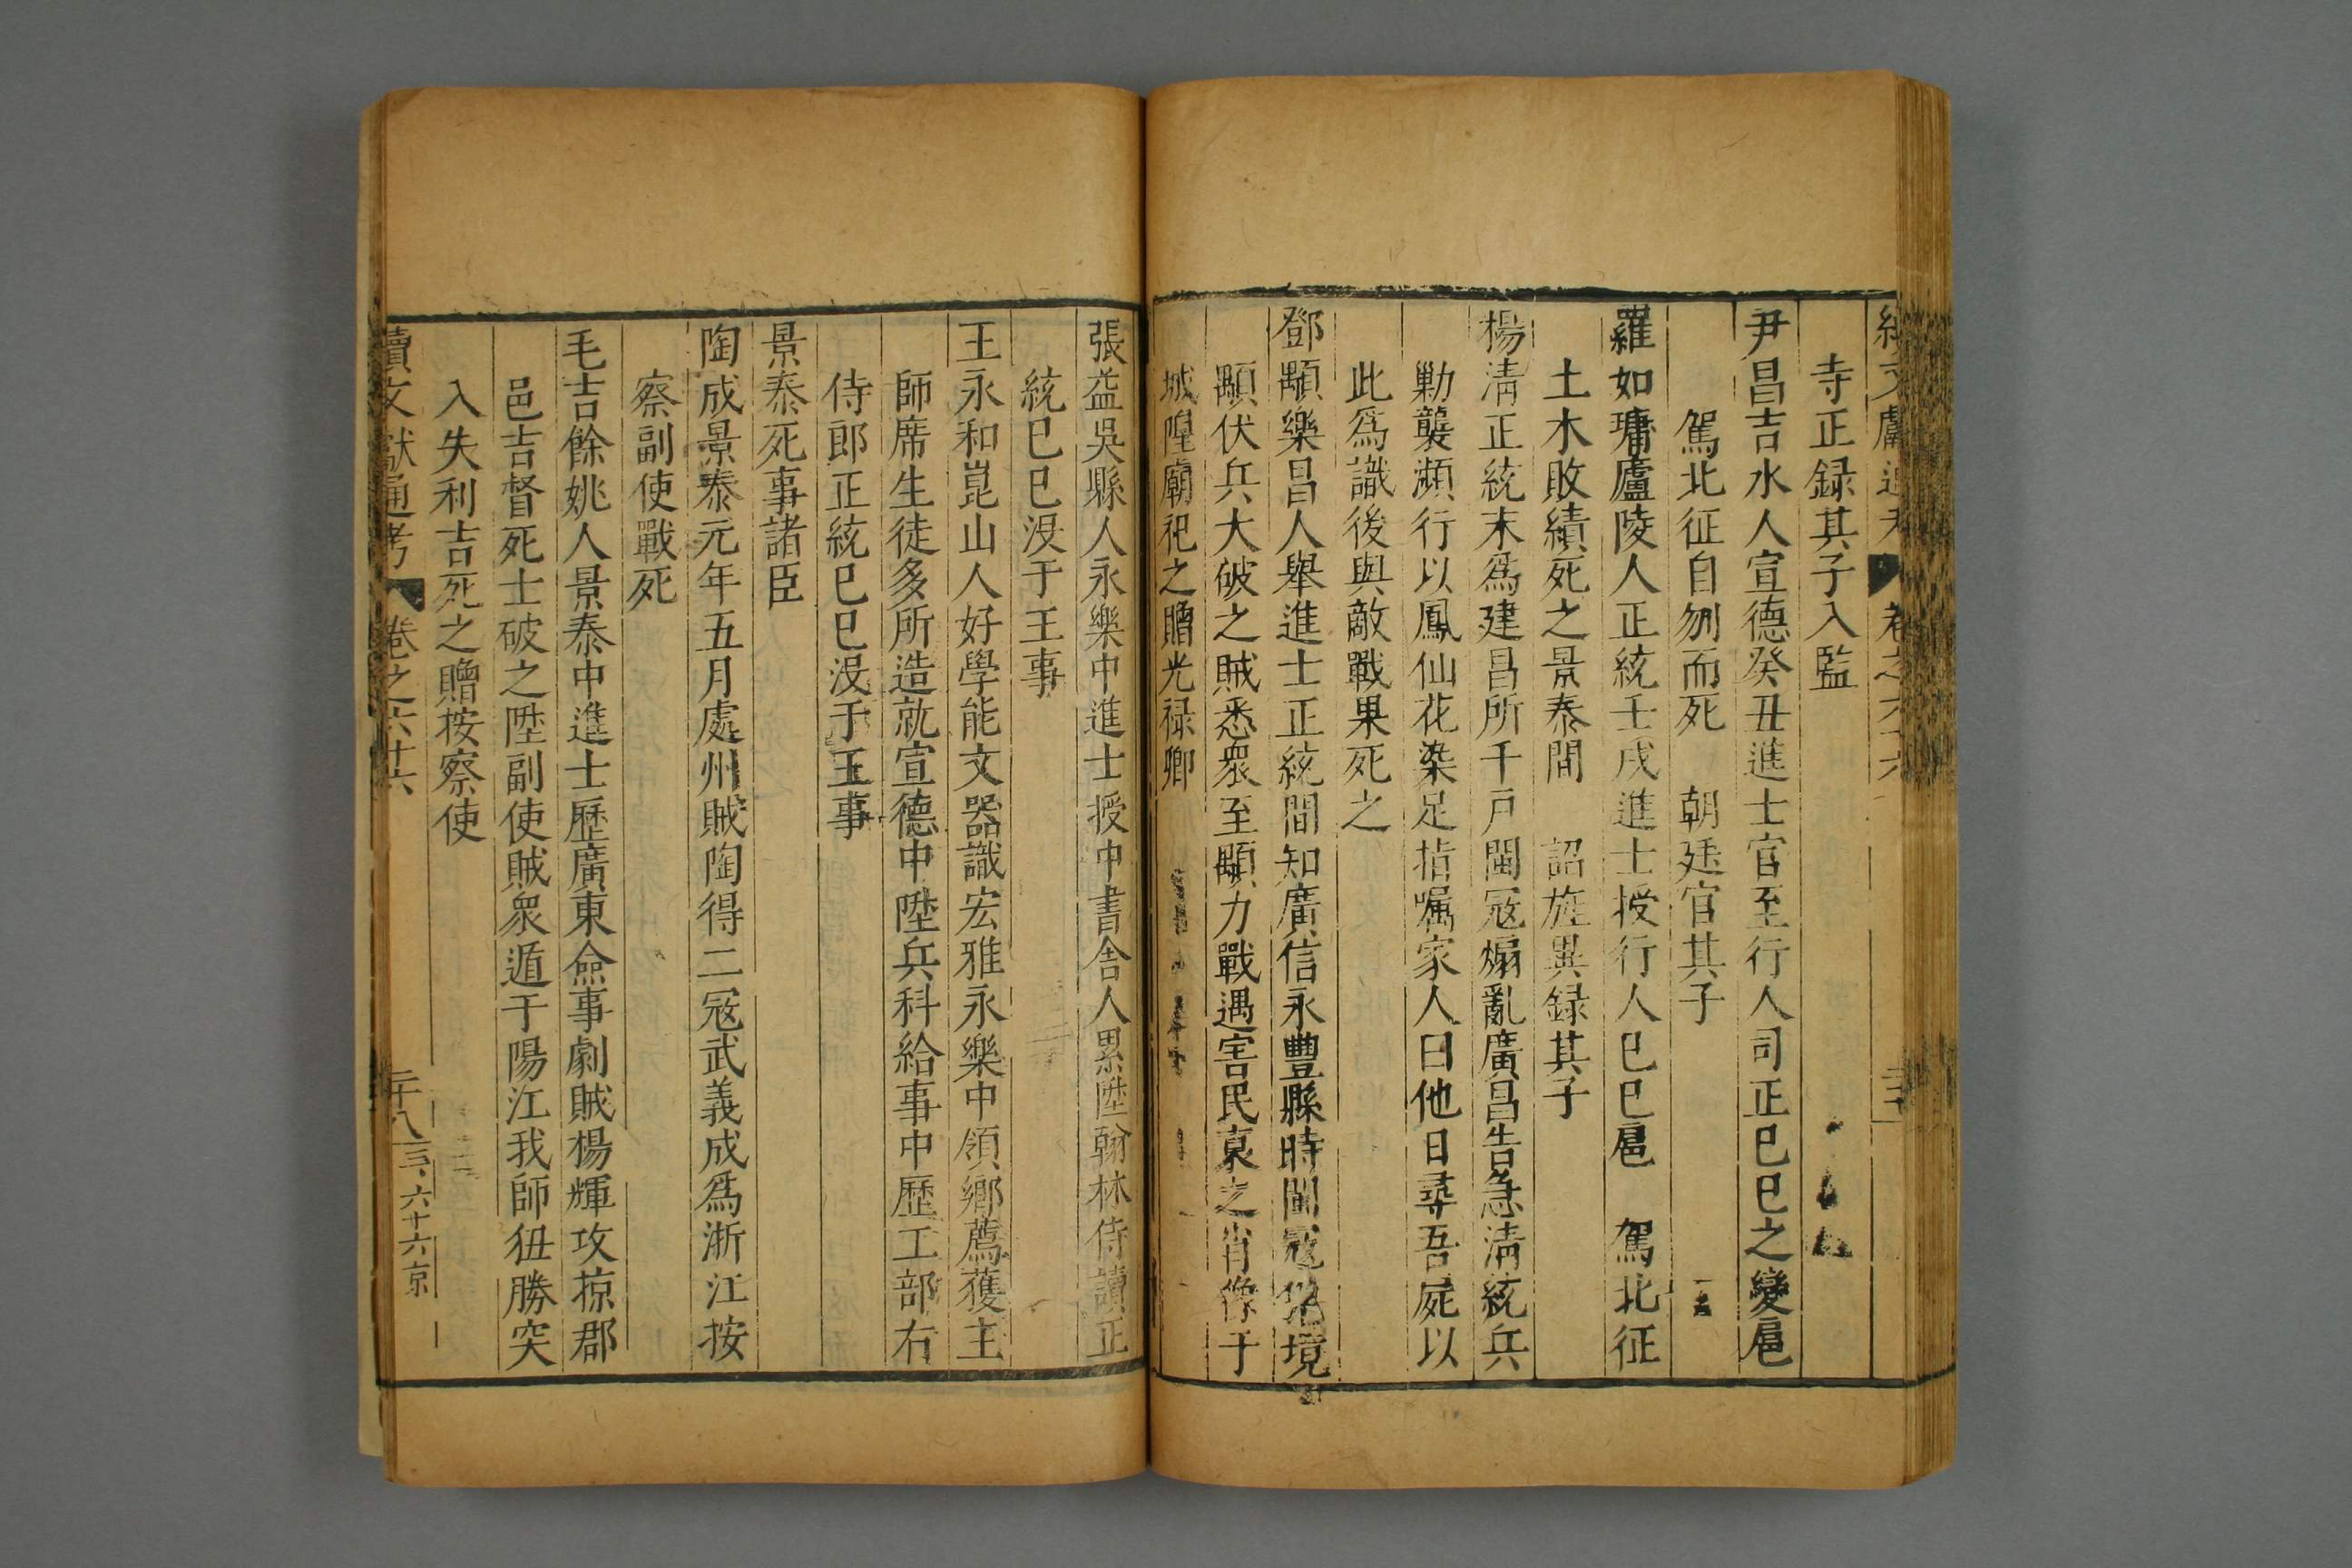 續文獻通考 卷之六十六
寺正録其子入監
尹昌吉水人宣德癸丑進士官至行人司正巳巳之變扈
駕北征自刎而死 朝廷官其子
羅如墉廬陵人正統壬戌進士授行人巳巳扈 駕北征
土木敗績死之景泰間 詔旌異録其子
楊清正統末爲建昌所千戸閩寇煽亂廣昌告急清統兵
勦襲瀕行以鳳仙花染足指嘱家人曰他日尋吾屍以
此爲識後與敵戰果死之
鄧顒樂昌人舉進士正統間知廣信永豊縣時閩寇犯境
顒伏兵大破之賊悉衆至顒力戰遇害民哀之肖像于
城隍廟祀之贈光禄卿
張益吳縣人永樂中進士授中書舎人累陞翰林侍讀正
統巳巳没于王事
王永和崑山人好學能文器識宏雅永樂中領鄉薦獲主
師席生徒多所造就宣德中陞兵科給事中歷工部右
侍郎正統巳巳没于王事
景泰死事諸臣
陶成景泰元年五月處州賊陶得二寇武義成爲浙江按
察副使戰死
毛吉餘姚人景泰中進士歷廣東僉事劇賊楊輝攻掠郡
邑吉督死士破之陞副使賊衆遁于陽江我師狃勝突
入失利吉死之贈按察使
續文獻通考 卷之六十六 二十八 三、六十六 京